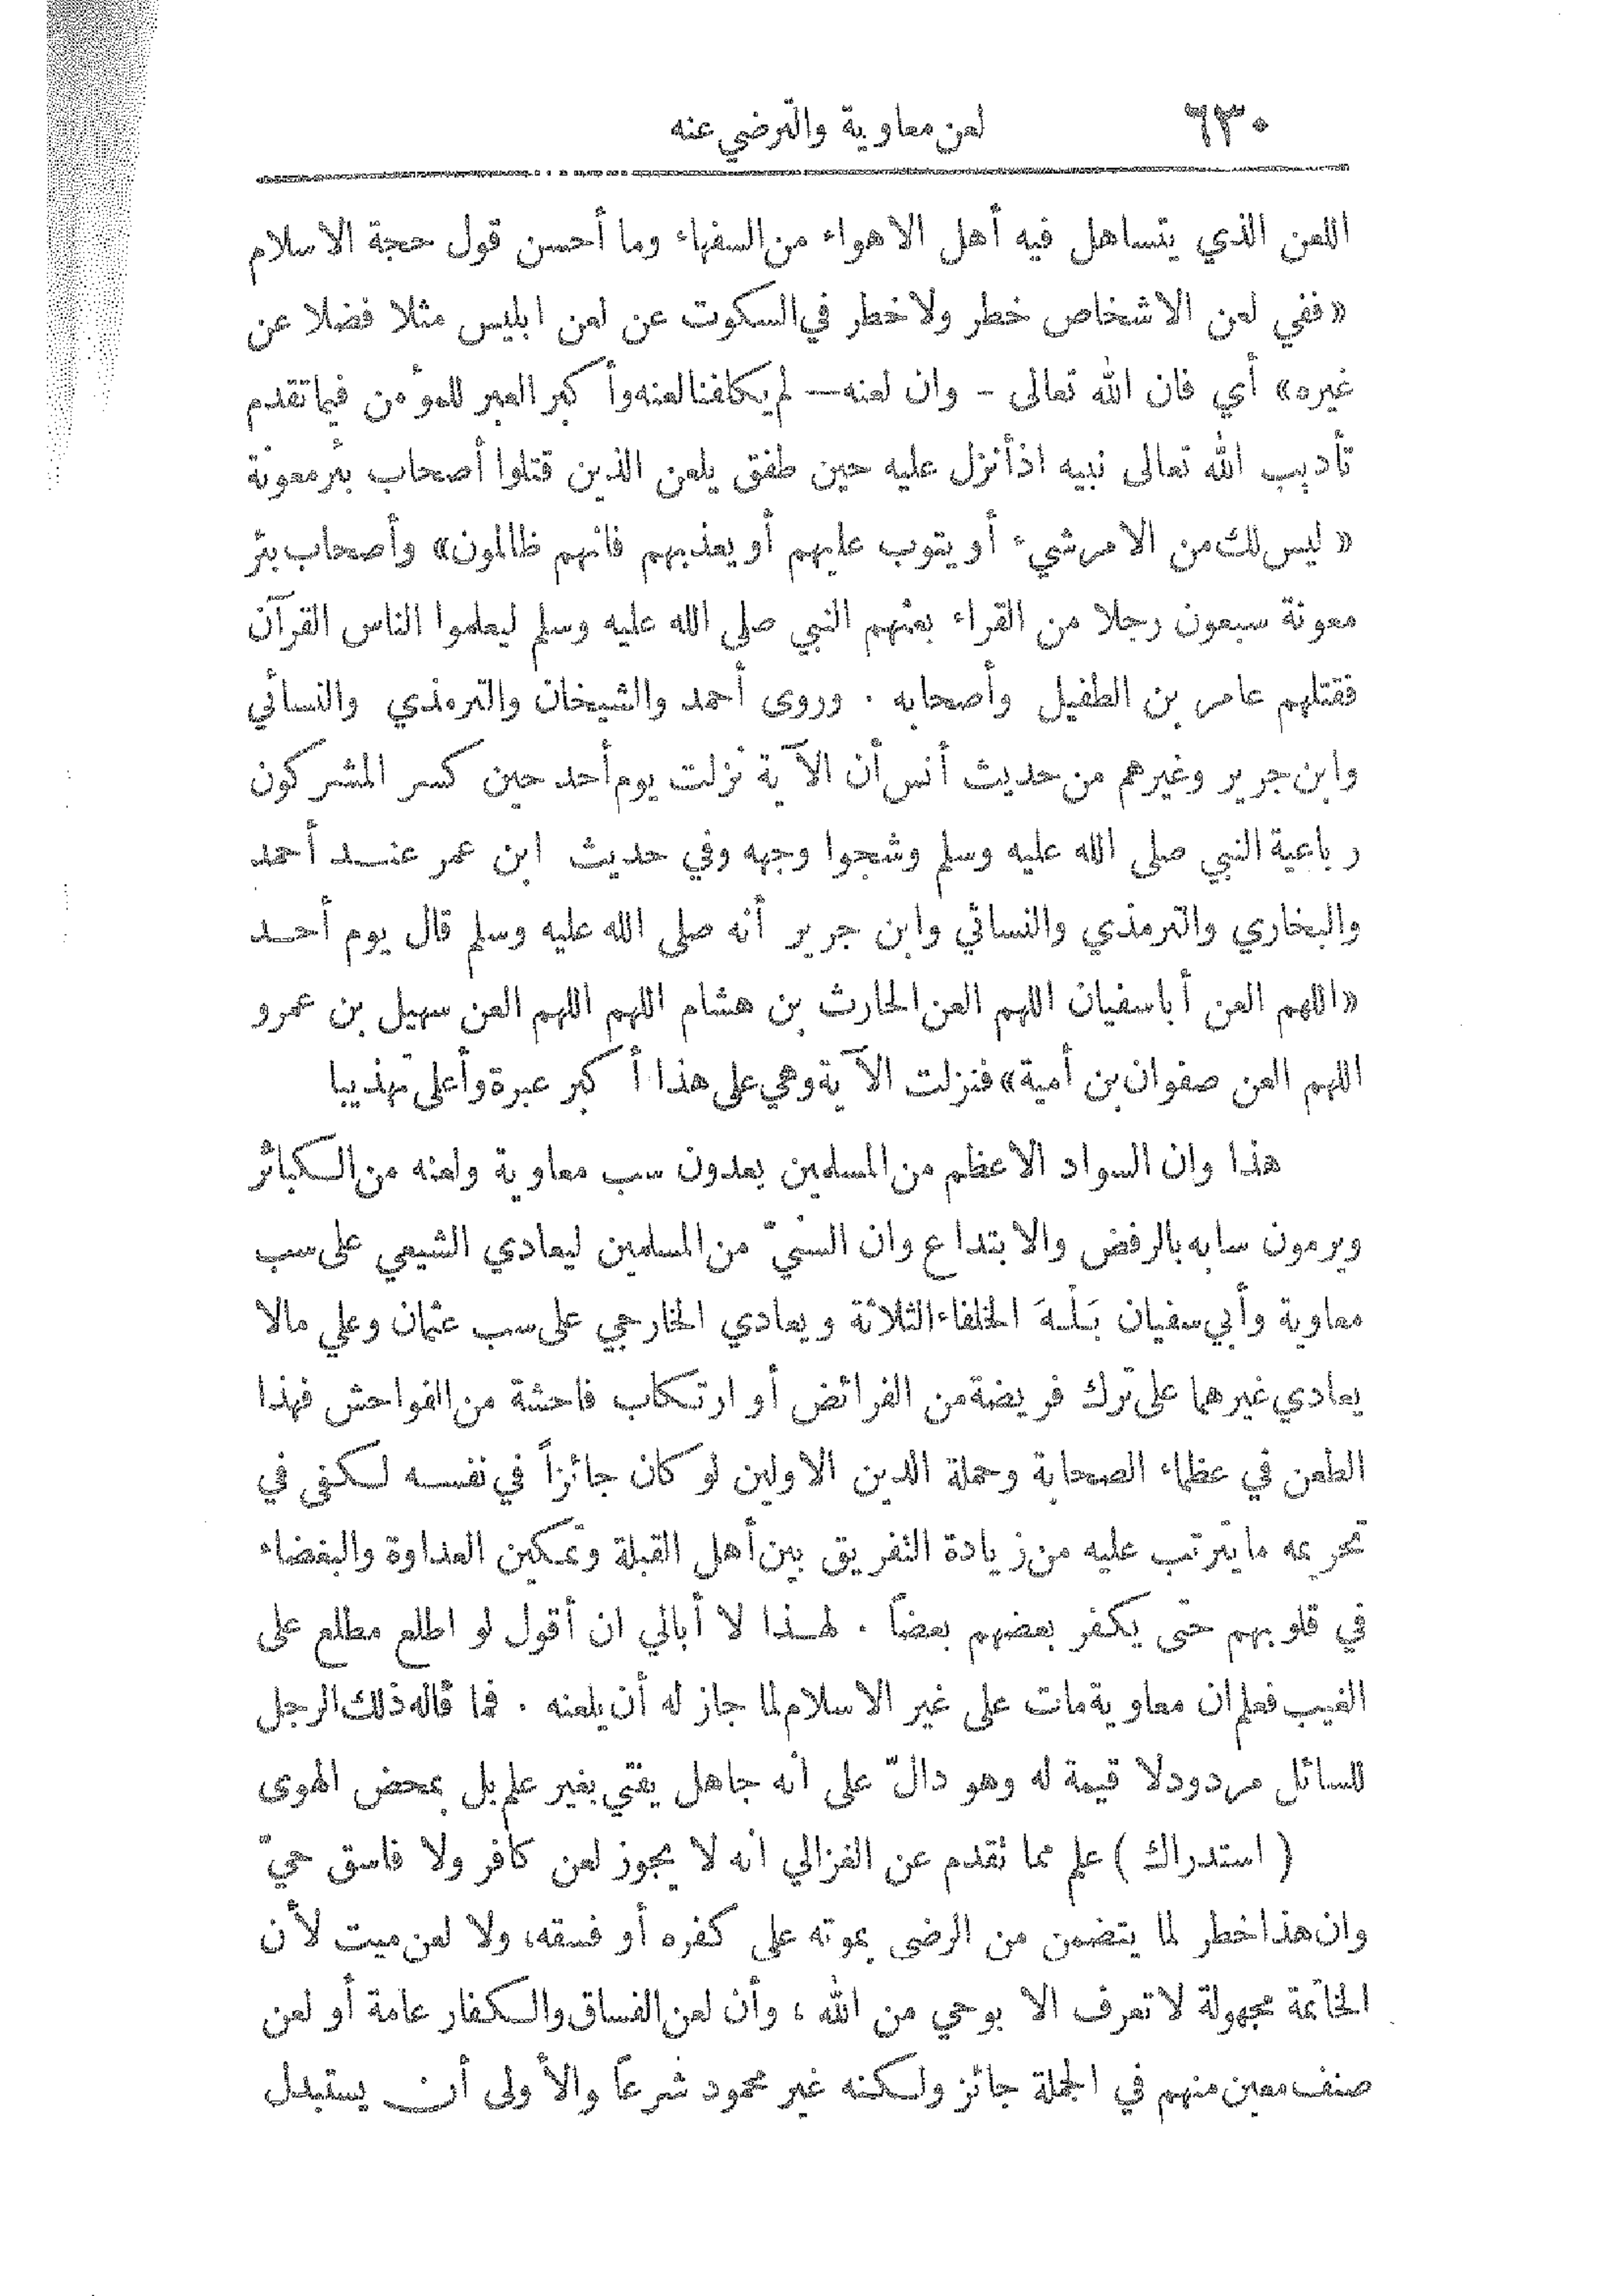 ٦٣٠ لعن معاوية والترضي عنه
اللعن الذي يتساهل فيه أهل الاهواء من السفهاء وما أحسن قول حجة الاسلام
«ففي لعن الاشخاص خطر ولا خطر في السكوت عن لعن ابليس مثلا فضلا عن
غيره» أي فان الله تعالى - وان لعنه — لم يكلفنا لعنه وأكبر العبر للمؤمن فيما تقدم
تأديب الله تعالى نبيه اذ أنزل عليه حين طفق يلعن الذين قتلوا أصحاب بئر معونة
« ليس لك من الامر شيء أو يتوب عليهم أو يعذبهم فانهم ظالمون» وأصحاب بئر
معونة سبعون رجلا من القراء بعثهم النبي صلى الله عليه وسلم ليعلموا الناس القرآن
فقتلهم عامر بن الطفيل وأصحابه . وروى أحمد والشيخان والترمذي والنسائي
وابن جرير وغيرهم من حديث أنس أن الآية نزلت يوم أحد حين كسر المشركون
رباعية النبي صلى الله عليه وسلم وشجوا وجهه وفي حديث ابن عمر عند أحمد
والبخاري والترمذي والنسائي وابن جرير أنه صلى الله عليه وسلم قال يوم أحد
«اللهم العن أبا سفيان اللهم العن الحارث بن هشام اللهم اللهم العن سهيل بن عمرو
اللهم العن صفوان بن أمية» فنزلت الآية وهي على هذا أكبر عبرة وأعلى تهذيبا
هذا وان السواد الاعظم من المسلمين يعدون سب معاوية ولعنه من الكبائر
ويرمون سابه بالرفض والابتداع وان السنيّ من المسلمين ليعادي الشيعي على سب
معاوية وأبي سفيان بَلْهَ الخلفاء الثلاثة ويعادي الخارجي على سب عثمان وعلي مالا
يعادي غيرهما على ترك فريضة من الفرائض أو ارتكاب فاحشة من الفواحش فهذا
الطعن في عظماء الصحابة وحملة الدين الاولين لو كان جائزاً في نفسه لكفى في
تحريمه ما يترتب عليه من زيادة التفريق بين أهل القبلة وتمكين العداوة والبغضاء
في قلوبهم حتى يكفر بعضهم بعضاً . لهذا لا أبالي ان أقول لو اطلع مطلع على
الغيب فعلم ان معاوية مات على غير الاسلام لما جاز له أن يلعنه . فما قاله ذلك الرجل
للسائل مردود لا قيمة له وهو دالّ على انه جاهل يفتي بغير علم بل بمحض الهوى
( استدراك ) علم مما تقدم عن الغزالي انه لا يجوز لعن كافر ولا فاسق حيّ
وان هذا خطر لما يتضمن من الرضى بموته على كفره أو فسقه، ولا لعن ميت لأن
الخاتمة مجهولة لا تعرف الا بوحي من الله ، وأن لعن الفساق والكفار عامة أو لعن
صنف معين منهم في الجملة جائز ولكنه غير محمود شرعاً والأولى أن يستبدل